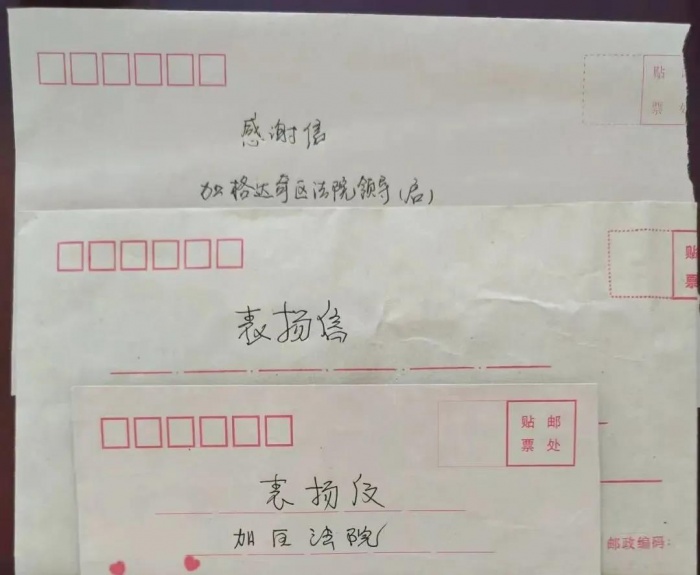 贴
票
感谢信
加格达奇区法院领导(启)
贴
票
表扬信
贴 邮
票 处
表扬信
加区法院
邮政编码: